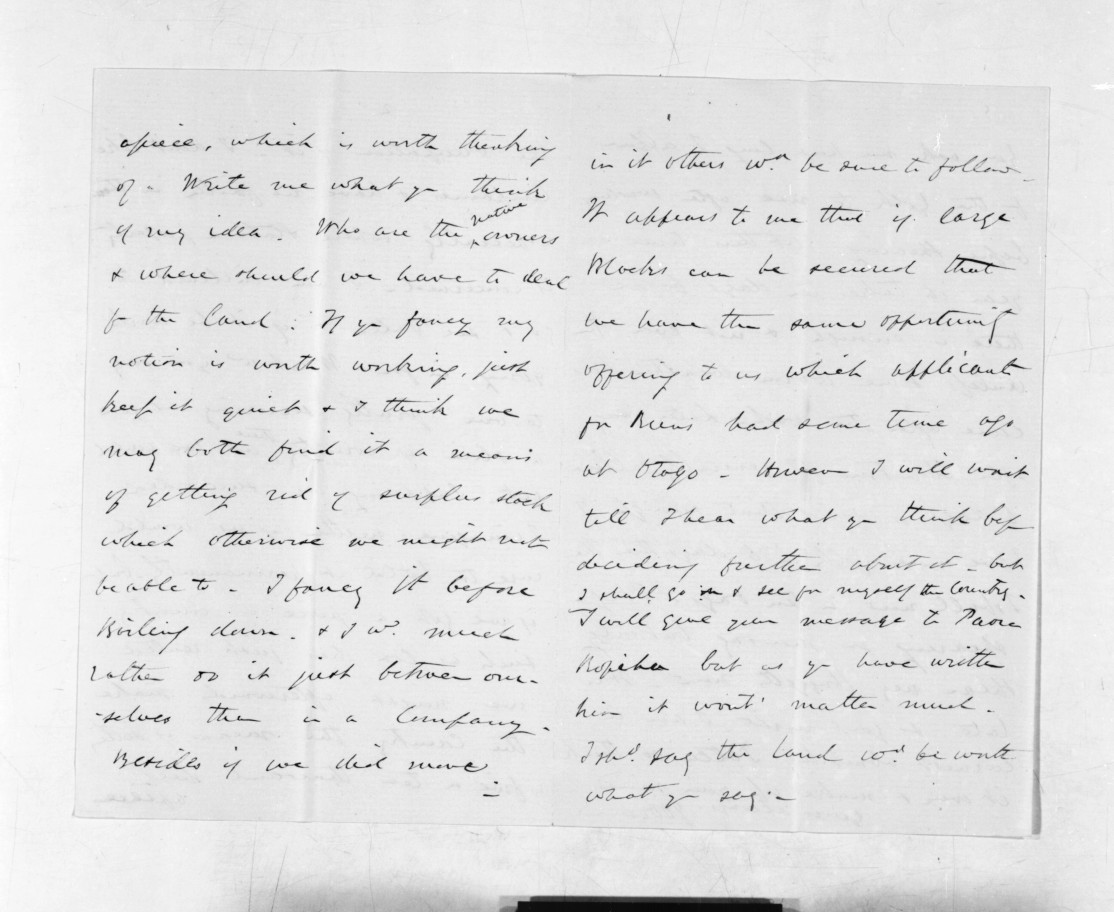 apiece, which is worth thinking
of. Write me what yr think
of my idea. Who are the native owners
& where should we have to deal
fr the land? If yr fancy my
notion is worth working, just
keep it quiet & I think we
may both find it a means
of getting rid of surplus stock
which otherwise we might not
be able to - I fancy it before
Boiling down. & I wd. much
rather do it just between our-
-selves than in a Company.
Besides if we did move
in it others wd. be sure to follow.
It appears to me that if large
Blocks can be secured that
we have the same opportunity
offering to us which applicants
for Runs had some time ago
at Otago - However I will wait
till I hear what yr think bef
deciding further about it - but
I shall go in & see for myself the country.
I will give your message to Paora
Ropiha but as yr have written
him it wont' matter much.
I shd. say the land wd. be worth
what yr say. -